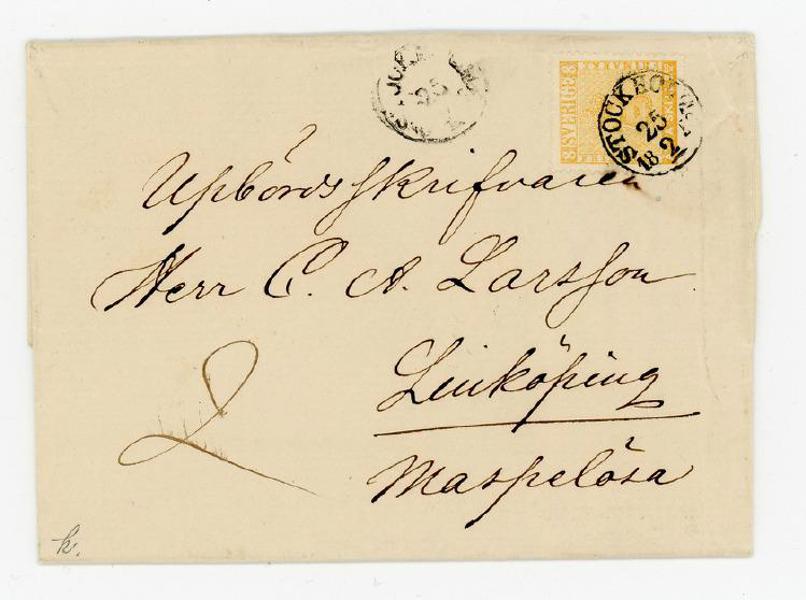 STOCKHOLM
25
25
2
18
8 SVERIGE 8
Uppbördsskrifvaren
Herr C. A. Larsson
Linköping
Maspelösa
2
k.